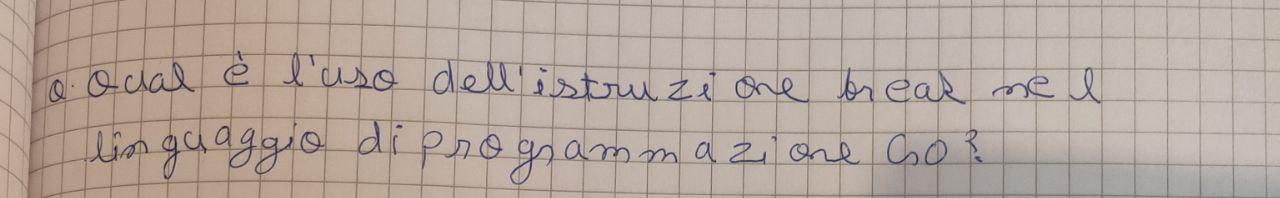 Q. Qual è l'uso dell'istruzione break nel
linguaggio di programmazione Go?